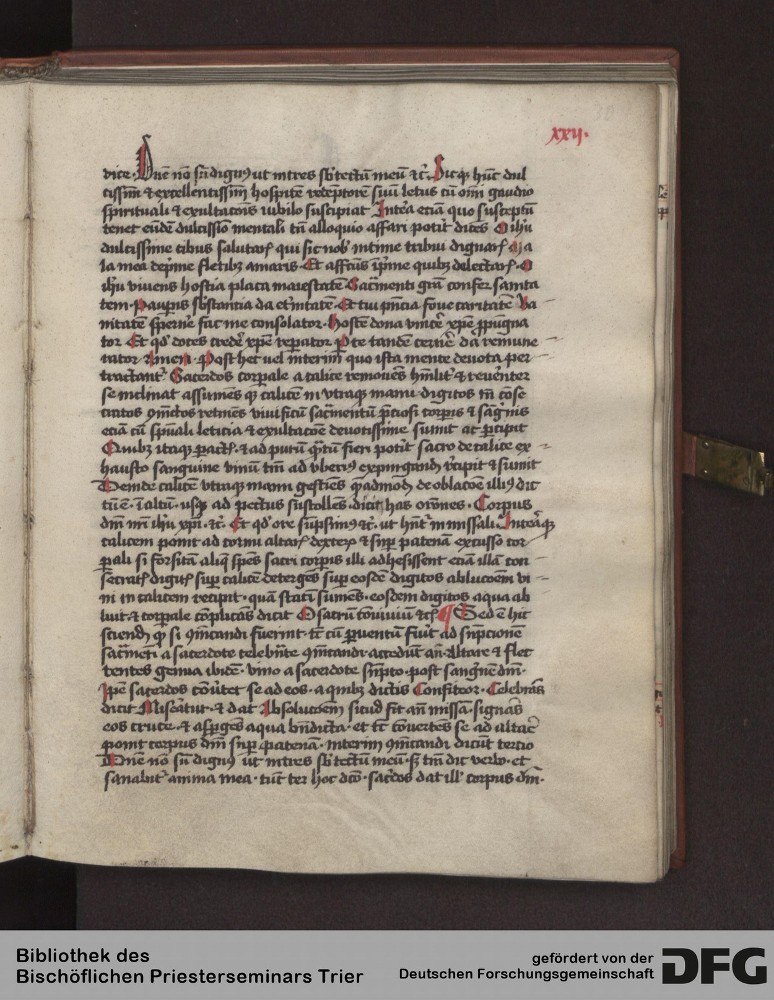 xxij.
dice. Dn̄e nō sū dignꝰ ut intres sb̄ tectū meū ⁊c̄. Sicqꝫ hūc dul
cissim̄ ⁊ excellentissim̄ hospitē receptorē suū letus cū om̄i gaudio
spirituali ⁊ exultacōis iubilo suscipiat Interea eciā quo susceptū
tenet eūdē dulcissīo mentali tū alloquio affari potit dicēs O ihū
dulcissime cibus salutarꝭ qui sic nob̄ intime tribui dignarꝭ
la mea dep̄me fletibꝫ amaris. Et affectus īp̄me quibꝫ delectarꝭ. O
ihū viuens hostia placa maiestatē Sac̄menti grām confer sancta
tem. Pauꝑis sb̄stantia da et̄nitatē. Et tui p̄ncia foue caritatē Va
nitatē sperne fac me consolator. Hostē dona vincē xp̄e ꝓpugna
tor Et qd̄ doces credē xp̄e reꝑator te tandē cernē dā remune
rator Amen. Post hec uel interim quo ista mente deuota per
tractant Sacerdos corꝑale a calice remouēs hūilit̄ ⁊ reuēnter
se inclinat assumēs qꝫ calicē in vtraqꝫ manu digitos tn̄ cōse
cratos ꝯiūctos retinēs viuificū sac̄mentū p̄ciosi corꝑis ⁊ sāḡnis
eciā cū sp̄uali leticia ⁊ exultacōe deuotissime sumit ac ꝑcipit
Quibꝫ itaqꝫ ꝑactꝭ. ⁊ ad purū q̄tū fieri potit sacro de calice ex
hausto sanguine vinū tm̄ ad vberiꝰ expurgandū recipit ⁊ sumit
Deinde calicē vtraqꝫ manu gestiēs q̄admodū de oblacōe illiꝰ dic
tū ē. ī altū. usqꝫ ad pectus sustollēs. dicit has orōnes. Corpus
dn̄i nr̄i ihū xp̄i. ⁊c̄. Et qd̄ ore sūpsimꝰ ⁊c̄. ut hn̄t̄ in missali
calicem ponit ad cornu altarꝭ dextrꝭ ⁊ suꝑ patenā excusso cor
ꝑali si forsitā aliq̄ sp̄es sacri corꝑis illi adhesissent eciā illā con
secratꝭ digitꝭ suꝑ calicē detergēs suꝑ eosdē digitos ablucōem vi
ni in calicem recipit. quā statī sumēs. eosdem digitos aqua ab
luit ⁊ corꝑale cōplicās dicit O sacrū conuiuiū ⁊c̄ ¶ Sed ē hic
sciendū qꝫ si ꝯīcandi fuerint. tc̄ cū ꝑuentū fiūit ad sūpcione
sac̄menti a sacerdote celebn̄te ꝯīcandi. accedūt an̄. Altare ⁊ flec
tentes genua ibidē. vino a sacerdote sūpto. post sanḡnē dn̄i.
Ip̄e sacerdos cōūtet se ad eos. a quibꝫ dictis Confiteor. Celebrās
dicit Miseāt̄ur. ⁊ dat Absolucōem sicud fit an̄ missā. signās
eos cruce. ⁊ aspgēs aqua bn̄dicta. et tc̄ cōuertēs se ad altaē
ponit corpus dn̄i suꝑ patenam. interim ꝯīcandi dicūt tercio
Dn̄e nō sū dignꝰ ut intres sb̄ tectū meū. sꝫ tm̄ dic verbo. et
sanabit̄ anima mea. tūc ter hoc dcō. sac̄dos dat ill̄ corpus dn̄i.
Bibliothek des
Bischöflichen Priesterseminars Trier
gefördert von der
Deutschen Forschungsgemeinschaft
DFG